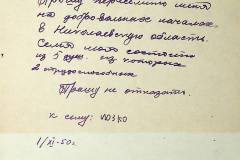 Прошу переселить меня
на добровольных началах
в Николаевскую область.
Семья моя состоит
из 5 душ. из которых
2 трудоспособных
Прошу не отказать.
к сему:
1/XI-50г.